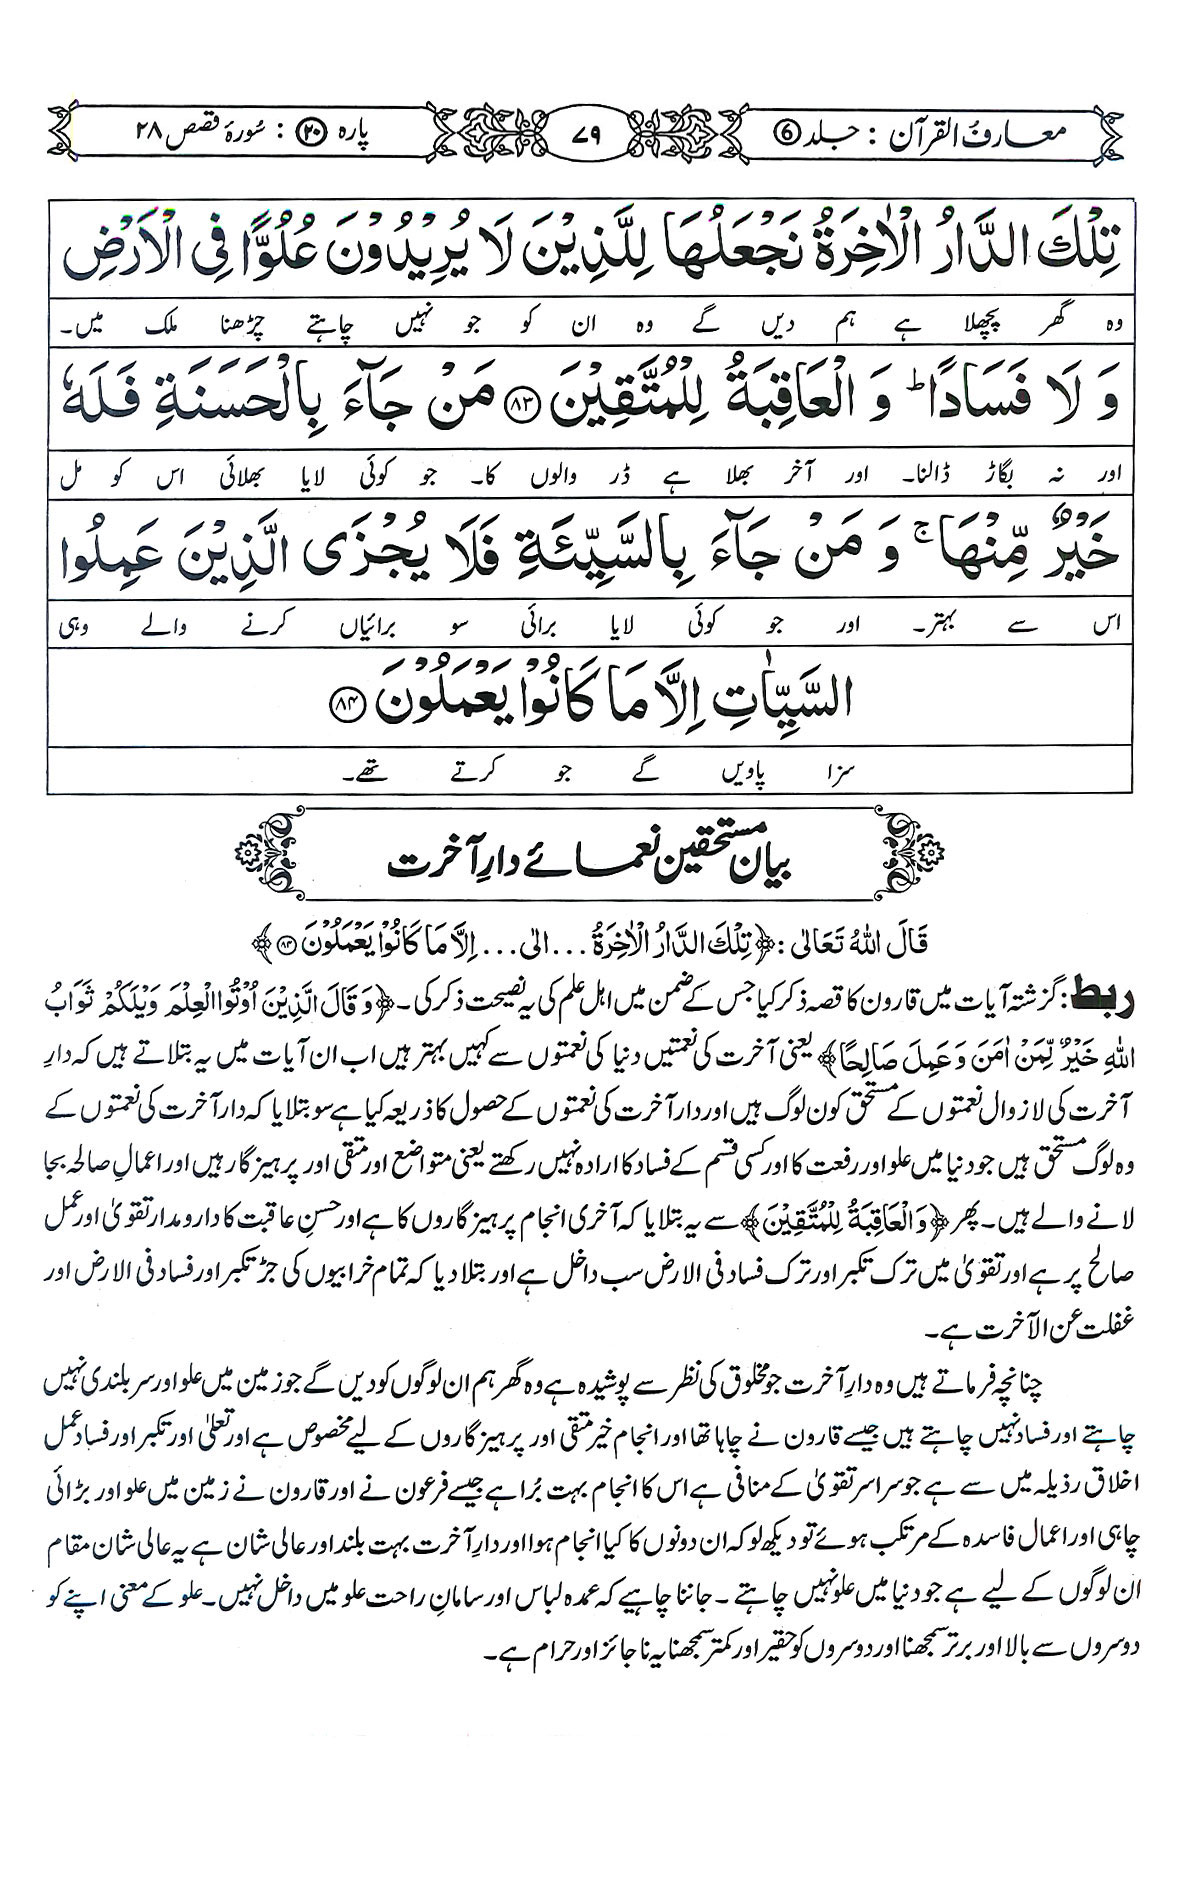 معارف القرآن : جلد ⑥
۷۹
پارہ ⑳ : سُورۂ قصص ۲۸
تِلْكَ الدَّارُ الْاٰخِرَةُ نَجْعَلُهَا لِلَّذِيْنَ لَا يُرِيْدُوْنَ عُلُوًّا فِى الْاَرْضِ
وہ گھر پچھلا ہے ہم دیں گے وہ ان کو جو نہیں چاہتے چڑھنا ملک میں۔
وَ لَا فَسَادًا ؕ وَ الْعَاقِبَةُ لِلْمُتَّقِيْنَ ۝۸۳ مَنْ جَآءَ بِالْحَسَنَةِ فَلَهٗ
اور نہ بگاڑ ڈالنا۔ اور آخر بھلا ہے ڈر والوں کا۔ جو کوئی لایا بھلائی اس کو مل
خَيْرٌ مِّنْهَا ۚ وَ مَنْ جَآءَ بِالسَّيِّئَةِ فَلَا يُجْزَى الَّذِيْنَ عَمِلُوا
اس سے بہتر۔ اور جو کوئی لایا برائی سو برائیاں کرنے والے وہی
السَّيِّاٰتِ اِلَّا مَا كَانُوْا يَعْمَلُوْنَ ۝۸۴
سزا پاویں گے جو کرتے تھے۔
بیان مستحقین نعمائے دارِ آخرت
قَالَ اللهُ تَعَالٰى : ﴿تِلْكَ الدَّارُ الْاٰخِرَةُ ... الی ... اِلَّا مَا كَانُوْا يَعْمَلُوْنَ ۝۸۴﴾
ربط : گزشتہ آیات میں قارون کا قصہ ذکر کیا جس کے ضمن میں اہل علم کی یہ نصیحت ذکر کی۔ ﴿وَ قَالَ الَّذِيْنَ اُوْتُوا الْعِلْمَ وَيْلَكُمْ ثَوَابُ
اللهِ خَيْرٌ لِّمَنْ اٰمَنَ وَ عَمِلَ صَالِحًا﴾ یعنی آخرت کی نعمتیں دنیا کی نعمتوں سے کہیں بہتر ہیں اب ان آیات میں یہ بتلاتے ہیں کہ دارِ
آخرت کی لازوال نعمتوں کے مستحق کون لوگ ہیں اور دار آخرت کی نعمتوں کے حصول کا ذریعہ کیا ہے سو بتلایا کہ دار آخرت کی نعمتوں کے
وہ لوگ مستحق ہیں جو دنیا میں علو اور رفعت کا اور کسی قسم کے فساد کا ارادہ نہیں رکھتے یعنی متواضع اور متقی اور پرہیزگار ہیں اور اعمالِ صالحہ بجا
لانے والے ہیں۔ پھر ﴿وَ الْعَاقِبَةُ لِلْمُتَّقِيْنَ﴾ سے یہ بتلایا کہ آخری انجام پرہیزگاروں کا ہے اور حسنِ عاقبت کا دارومدار تقویٰ اور عمل
صالح پر ہے اور تقویٰ میں ترک تکبر اور ترک فساد فی الارض سب داخل ہے اور بتلا دیا کہ تمام خرابیوں کی جڑ تکبر اور فساد فی الارض اور
غفلت عن الآخرت ہے۔
چنانچہ فرماتے ہیں وہ دارِ آخرت جو مخلوق کی نظر سے پوشیدہ ہے وہ گھر ہم ان لوگوں کو دیں گے جو زمین میں علو اور سربلندی نہیں
چاہتے اور فساد نہیں چاہتے ہیں جیسے قارون نے چاہا تھا اور انجام خیر متقی اور پرہیزگاروں کے لیے مخصوص ہے اور تعلیٰ اور تکبر اور فساد عمل
اخلاق رذیلہ میں سے ہے جو سراسر تقویٰ کے منافی ہے اس کا انجام بہت بُرا ہے جیسے فرعون نے اور قارون نے زمین میں علو اور بڑائی
چاہی اور اعمال فاسدہ کے مرتکب ہوئے تو دیکھ لو کہ ان دونوں کا کیا انجام ہوا اور دارِ آخرت بہت بلند اور عالی شان ہے یہ عالی شان مقام
ان لوگوں کے لیے ہے جو دنیا میں علو نہیں چاہتے۔ جاننا چاہیے کہ عمدہ لباس اور سامانِ راحت علو میں داخل نہیں۔ علو کے معنی اپنے کو
دوسروں سے بالا اور برتر سمجھنا اور دوسروں کو حقیر اور کمتر سمجھنا یہ ناجائز اور حرام ہے۔